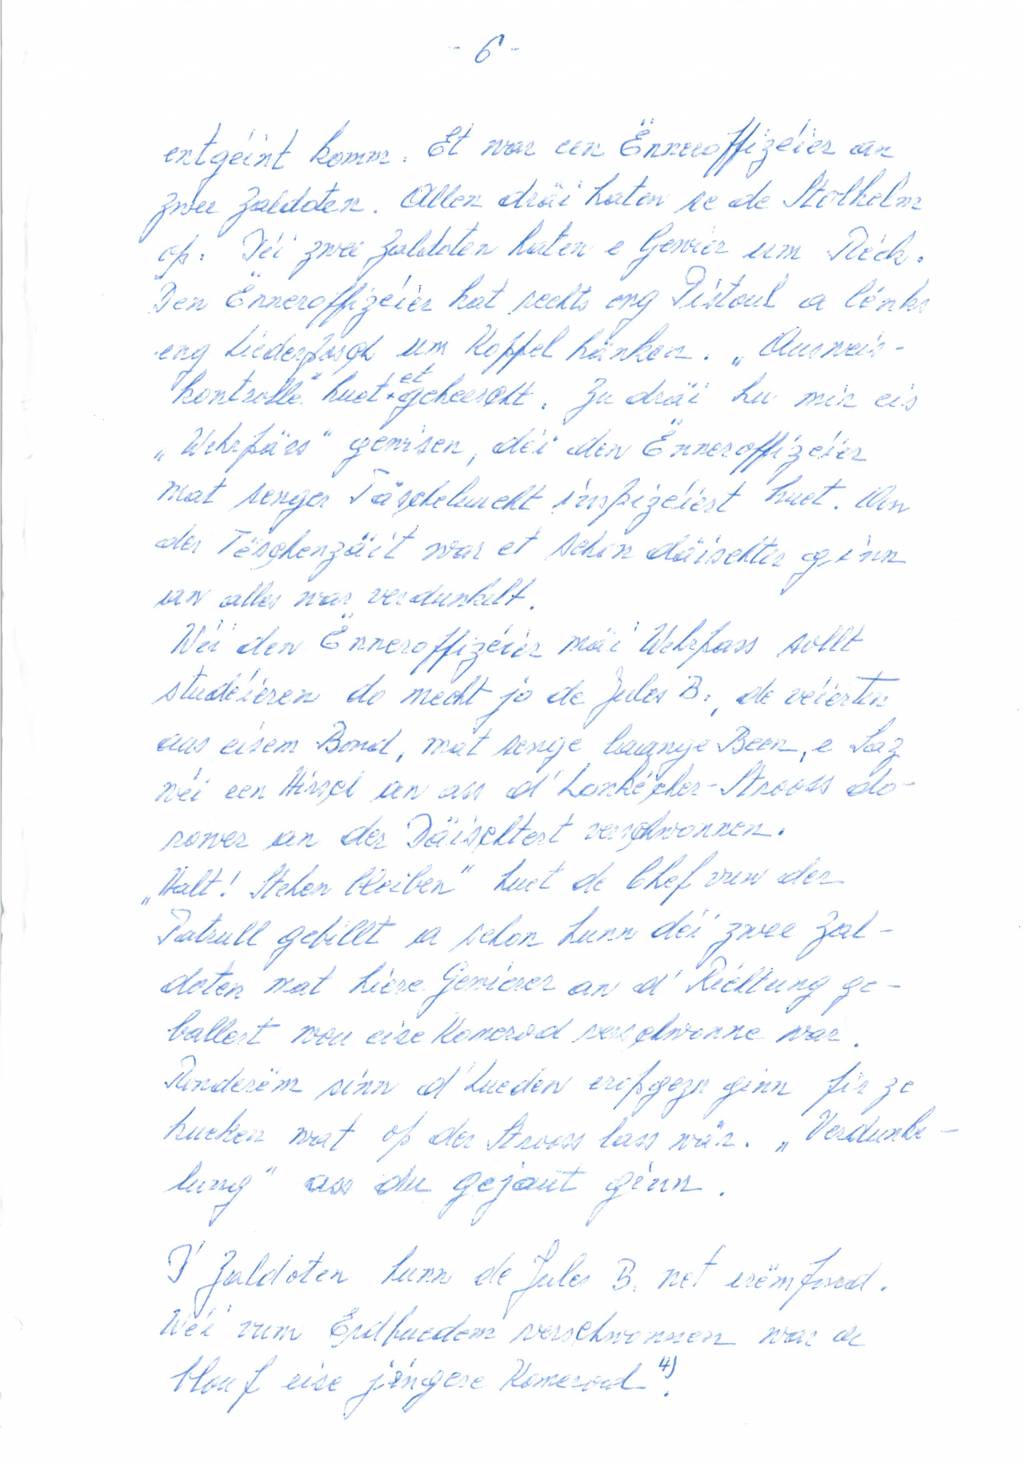 - 6 -
entgéint komm. Et war een Ënneroffizéier an
zwee Zaldoten. Allen dräi haten se de Stolhelm
op. Déi zwee Zaldoten haten e Gewier um Réck.
Den Ënneroffizéier hat rechts eng Pistoul a lénks
eng Liederposch um Koppel hänken. „Ausweis-
kontrolle" huet et geheescht. Zu dräi hu mir eis
„Wehrpäss" gewisen, déi den Ënneroffizéier
mat senger Täscheluucht inspizéiert huet. An
der Tëschenzäit war et schon däischter ginn
an alles war verdunkelt.
Wéi den Ënneroffizéier mäi Wehrpass sollt
studéieren do mecht jo de Jules B., de véierten
aus eisem Bond, mat senge laange Been, e Saz
wéi een Hirsch an ass d'Lonkécher-Strooss do-
rower an der Däischtert verschwonnen.
„Halt! Stehen bleiben" huet de Chef vun der
Patrull gebillt a schon hunn déi zwee Zal-
doten mat hire Gewierer an d'Richtung ge-
ballert wou eise Komerod verschwonne war.
Ronderëm sinn d'Lueden eropgezu ginn fir ze
kucken wat op der Strooss lass wär. „Verdunke-
lung" ass du gejaut ginn.
D'Zaldoten hunn de Jules B. net erëmfond.
Wéi vum Erdbuedem verschwonnen war a
blouf eise jéngere Komerod 4).